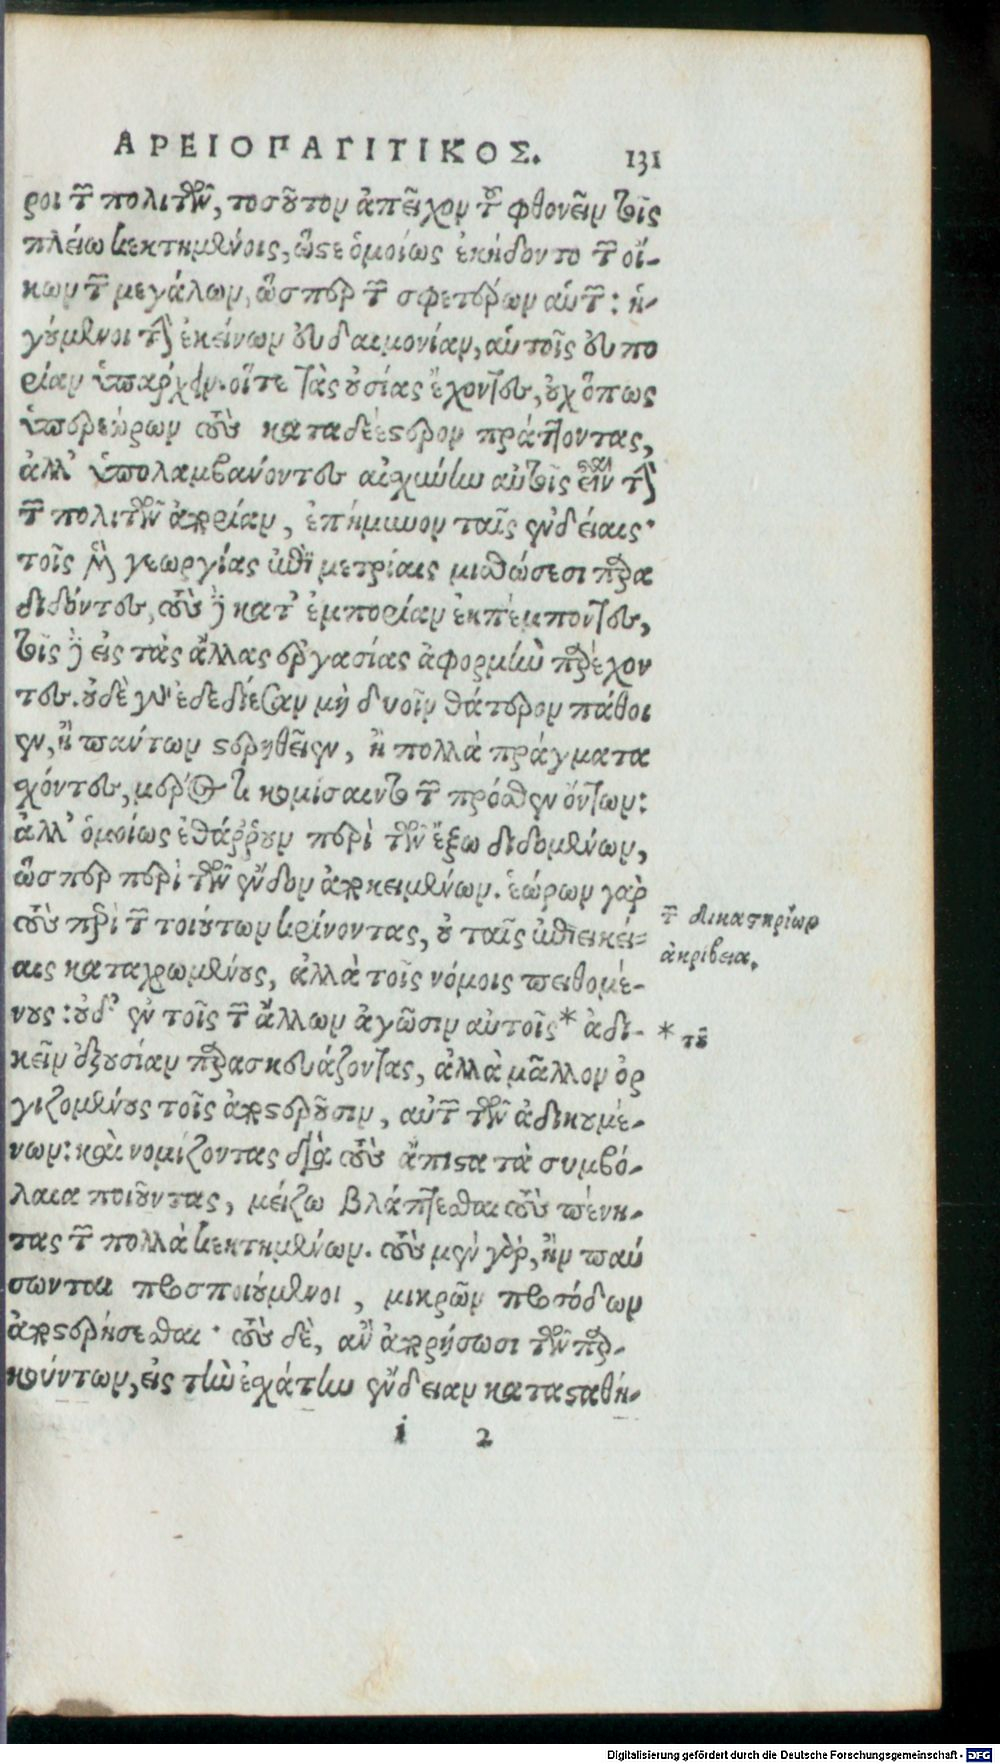 ΑΡΕΙΟΠΑΓΙΤΙΚΟΣ. 131
ροι τῶν πολιτῶν, τοσοῦτον ἀπεῖχον τοῦ φθονεῖν τοῖς
πλείω κεκτημένοις, ὥστε ὁμοίως ἐκήδοντο τῶν οἴ-
κων τῶν μεγάλων, ὥσπερ τῶν σφετέρων αὑτῶν: ἡ-
γούμενοι τὴν ἐκείνων εὐδαιμονίαν, αὑτοῖς εὐπο
ρίαν ὑπάρχειν. οἵτε τὰς οὐσίας ἔχοντες, οὐχ ὅπως
ὑπερεώρων τοὺς καταδεέστερον πράττοντας,
ἀλλ' ὑπολαμβάνοντες αἰσχύνην αὑτοῖς εἶναι τὴν
τῶν πολιτῶν ἀπορίαν, ἐπήμυνον ταῖς ἐνδείαις·
τοῖς μὲν γεωργίας ἐπὶ μετρίαις μισθώσεσι παρα
διδόντες, τοὺς δὲ κατ' ἐμπορίαν ἐκπέμποντες,
τοῖς δὲ εἰς τὰς ἄλλας ἐργασίας ἀφορμὴν παρέχον
τες. οὐδὲ γὰρ ἐδεδίεσαν μὴ δυοῖν θάτερον πάθοι
εν, ἢ πάντων στερηθεῖεν, ἢ πολλὰ πράγματα
χόντες, μέρος τι κομίσαιντο τῶν πρόσθεν ὄντων:
ἀλλ' ὁμοίως ἐθάῤῥουν περὶ τῶν ἔξω διδομένων,
ὥσπερ περὶ τῶν ἔνδον ἀποκειμένων. ἑώρων γὰρ
τοὺς περὶ τῶν τοιούτων κρίνοντας, οὐ ταῖς ἐπιεικεί-
αις καταχρωμένους, ἀλλὰ τοῖς νόμοις πειθομέ-
νους: οὐδ' ἐν τοῖς τῶν ἄλλων ἀγῶσιν αὑτοῖς* ἀδι-
κεῖν ἐξουσίαν παρασκευάζοντας, ἀλλὰ μᾶλλον ὀρ
γιζομένους τοῖς ἀποστεροῦσιν, αὐτῶν τῶν ἀδικουμέ-
νων: καὶ νομίζοντας διὰ τοὺς ἄπιστα τὰ συμβό-
λαια ποιοῦντας, μείζω βλάπτεσθαι τοὺς πένη-
τας τῶν πολλὰ κεκτημένων. τοὺς μὲν γὰρ, ἢν παύ
σωνται προσποιούμενοι, μικρῶν προσόδων
ἀποστερήσεσθαι· τοὺς δὲ, ἂν ἀπορήσωσι τῶν παρ-
κούντων, εἰς τὴν ἐσχάτην ἔνδειαν καταστασθή-
i 2
τῶν δικαστηρίων
ἀκρίβεια.
* τοῦ
Digitalisierung gefördert durch die Deutsche Forschungsgemeinschaft - DFG